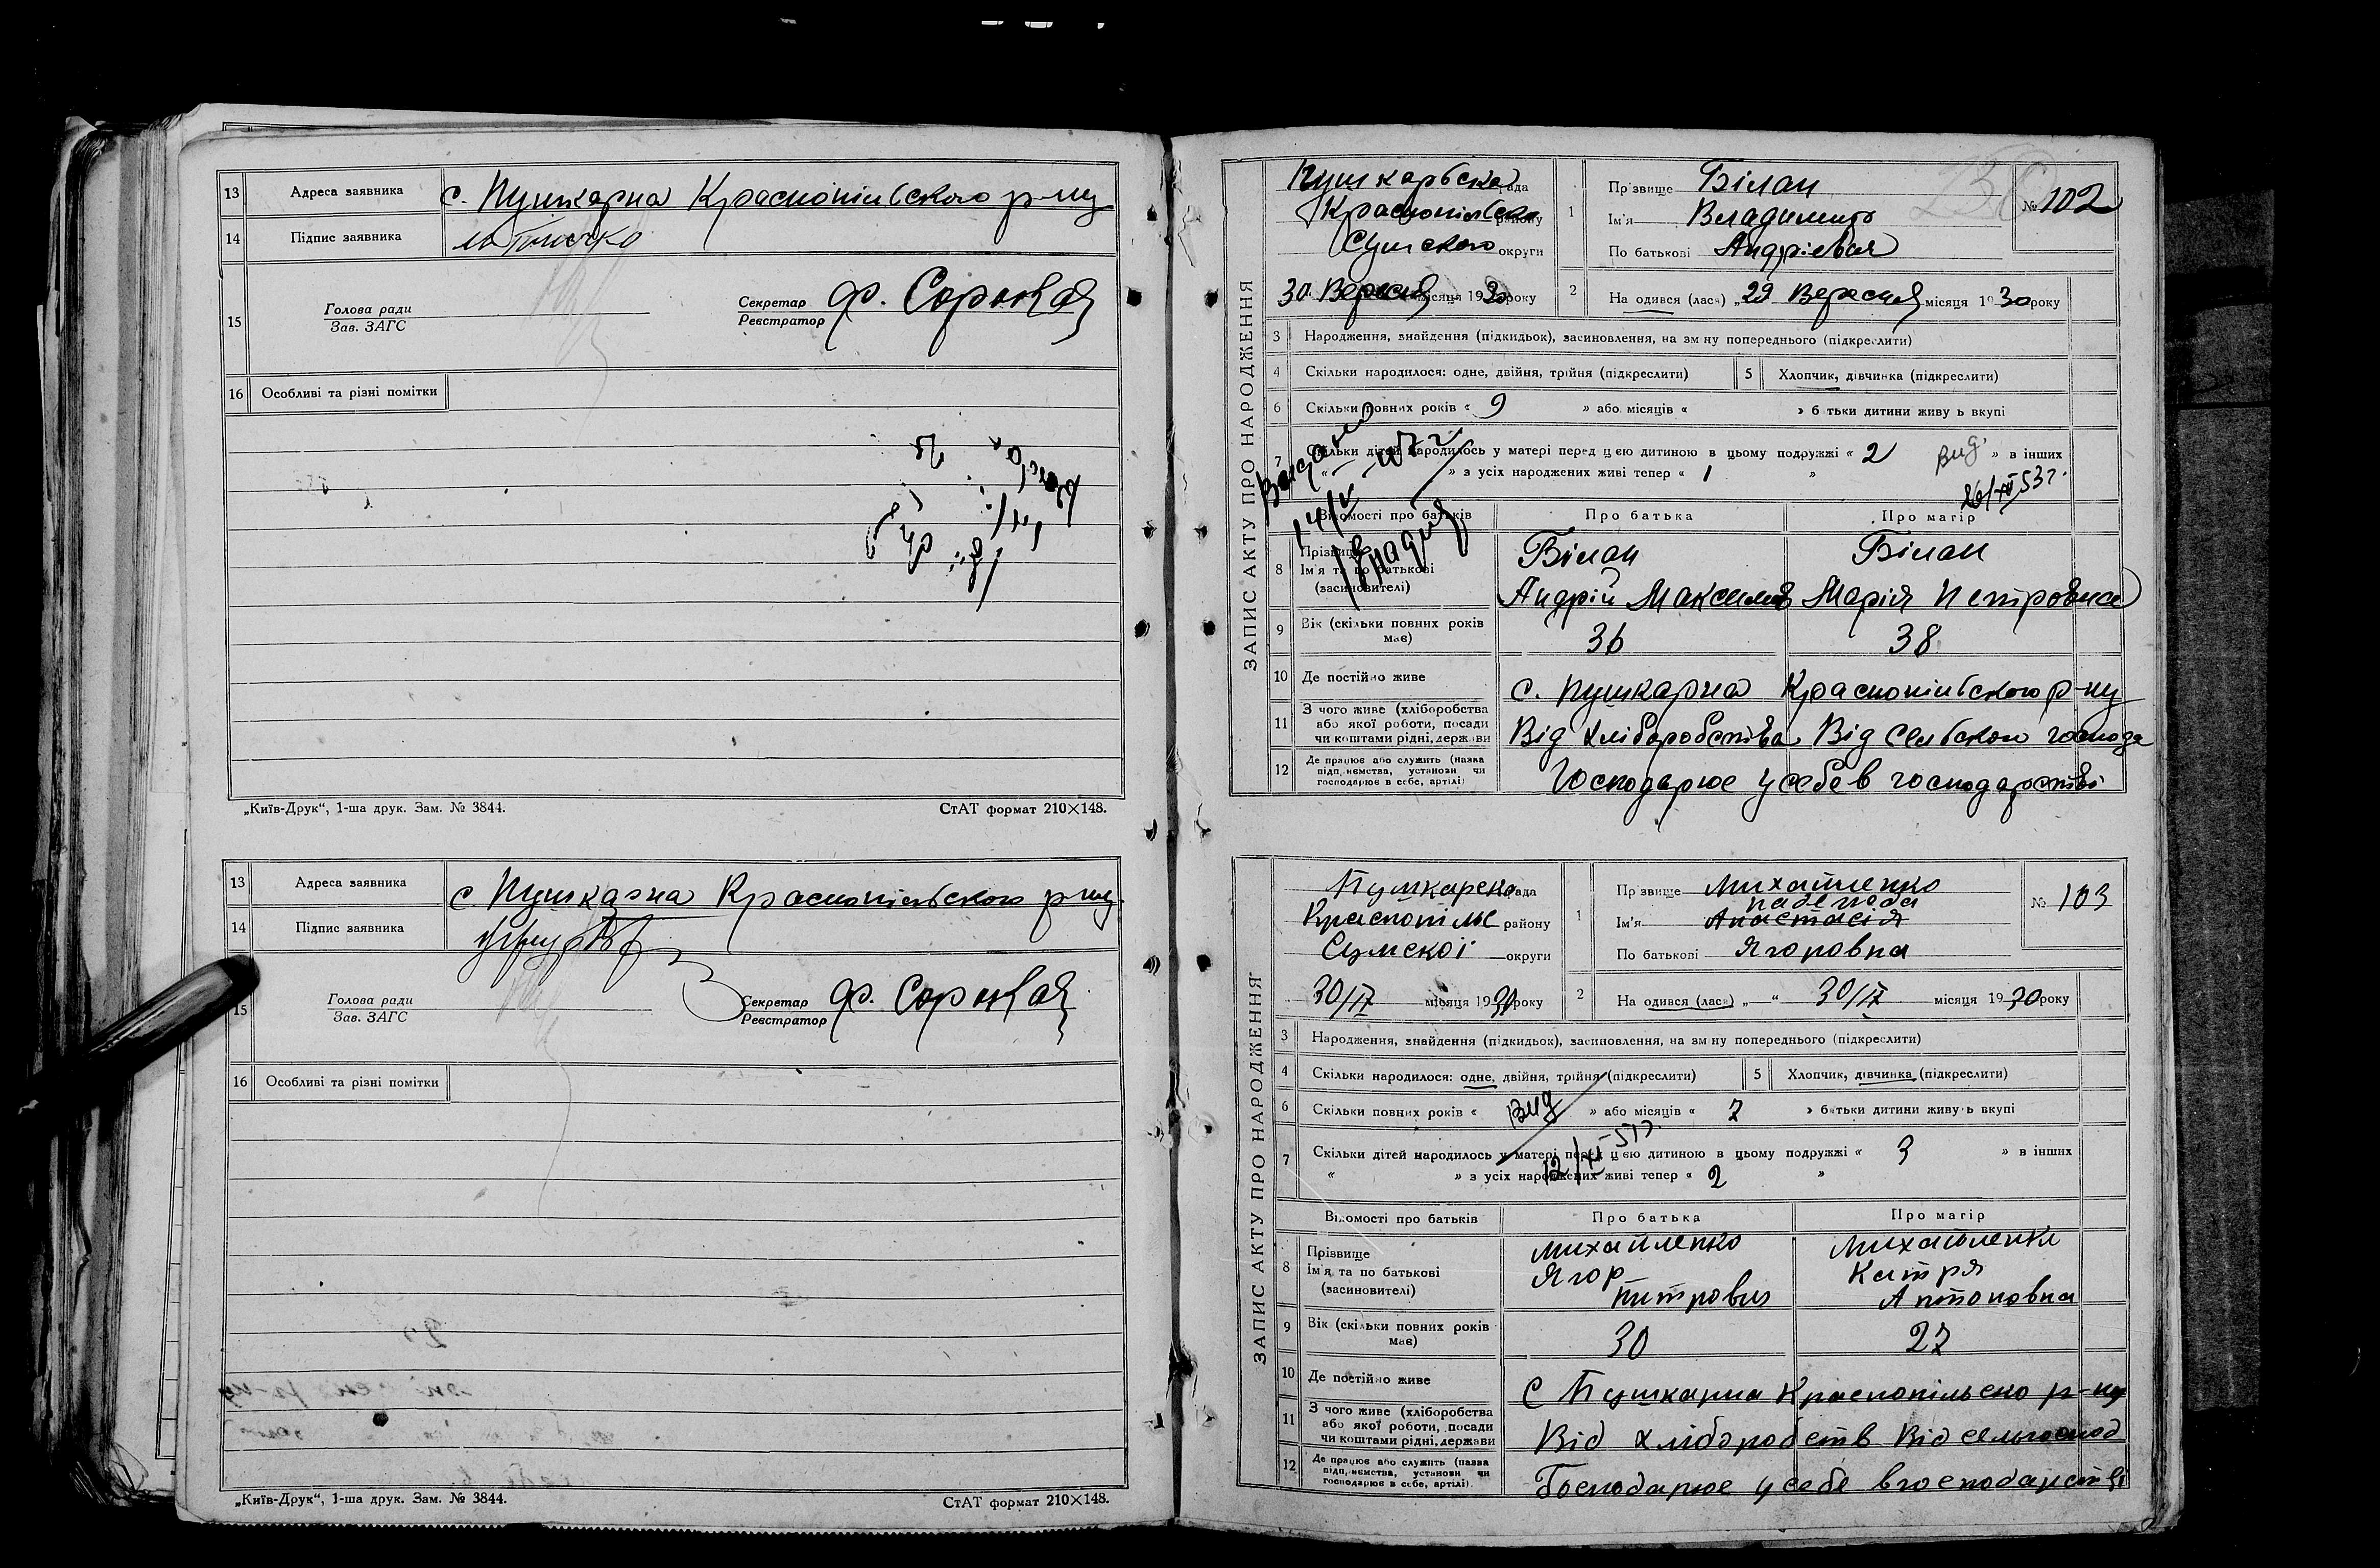 13 Адреса заявника с. Пушкарна Краснопільського р-ну
14 Підпис заявника
15 Голова ради
Зав. ЗАГС
Секретар Ф.
Реєстратор
16 Особливі та різні помітки
„Київ-Друк“, 1-ша друк. Зам. № 3844. СтАТ формат 210×148.
13 Адреса заявника с. Пушкарна Краснопільського р-ну
14 Підпис заявника
15 Голова ради
Зав. ЗАГС
Секретар Ф.
Реєстратор
16 Особливі та різні помітки
„Київ-Друк“, 1-ша друк. Зам. № 3844. СтАТ формат 210×148.
ЗАПИС АКТУ ПРО НАРОДЖЕННЯ
Пушкарьска рада
Краснопільско району
Сумского округи
30 Вересня місяця 1930 року
1 Прізвище Білан
Ім'я Владимир
По батькові Андрієвич
№ 102
2 На одився (лась) „29 Вересня місяця 1930 року
3 Народження, знайдення (підкидьок), засиновлення, на зміну попереднього (підкреслити)
4 Скільки народилося: одне, двійня, трійня (підкреслити)
5 Хлопчик, дівчинка (підкреслити)
6 Скільки повних років « 9 » або місяців « » батьки дитини живуть вкупі
7 Скільки дітей народилось у матері перед цією дитиною в цьому подружжі « 2 » в інших
« » з усіх народжених живі тепер « 1 »
вид.
Відомості про батьків Про батька Про матір
8 Прізвище
Ім'я та по батькові
(засиновителі)
Білан
Андрій Максимов
Білан
Марія Петровна
9 Вік (скільки повних років має) 36 38
10 Де постійно живе с. Пушкарна Краснопільского р-ну
11 З чого живе (хліборобства
або якої роботи, посади
чи коштами рідні, держави
Від хліборобства Від сельского господа
12 Де працює або служить (назва
підприємства, установи чи
господарює в себе, артілі)
Господарює у себе в господарстві
ЗАПИС АКТУ ПРО НАРОДЖЕННЯ
Пушкарска рада
Краснопільс району
Сумскої округи
30/IX місяця 1930 року
1 Прізвище Михайленко
Надегода
Ім'я Анастасія
По батькові Ягоровна
№ 103
2 На одився (лась) „—“ 30/IX місяця 1930 року
3 Народження, знайдення (підкидьок), засиновлення, на зміну попереднього (підкреслити)
4 Скільки народилося: одне, двійня, трійня (підкреслити)
5 Хлопчик, дівчинка (підкреслити)
6 Скільки повних років « » або місяців « 7 » батьки дитини живуть вкупі
вид
12/XI-51р.
7 Скільки дітей народилось у матері перед цією дитиною в цьому подружжі « 3 » в інших
« » з усіх народжених живі тепер « 2 »
Відомості про батьків Про батька Про матір
8 Прізвище
Ім'я та по батькові
(засиновителі)
Михайленко
Ягор
Питрович
Михайленко
Катря
Антоновна
9 Вік (скільки повних років має) 30 27
10 Де постійно живе С Пушкарна Краснопільско р-ну
11 З чого живе (хліборобства
або якої роботи, посади
чи коштами рідні, держави
Від хліборобств Від сельгоспод
12 Де працює або служить (назва
підприємства, установи чи
господарює в себе, артілі)
Господарює у себе в господарстві